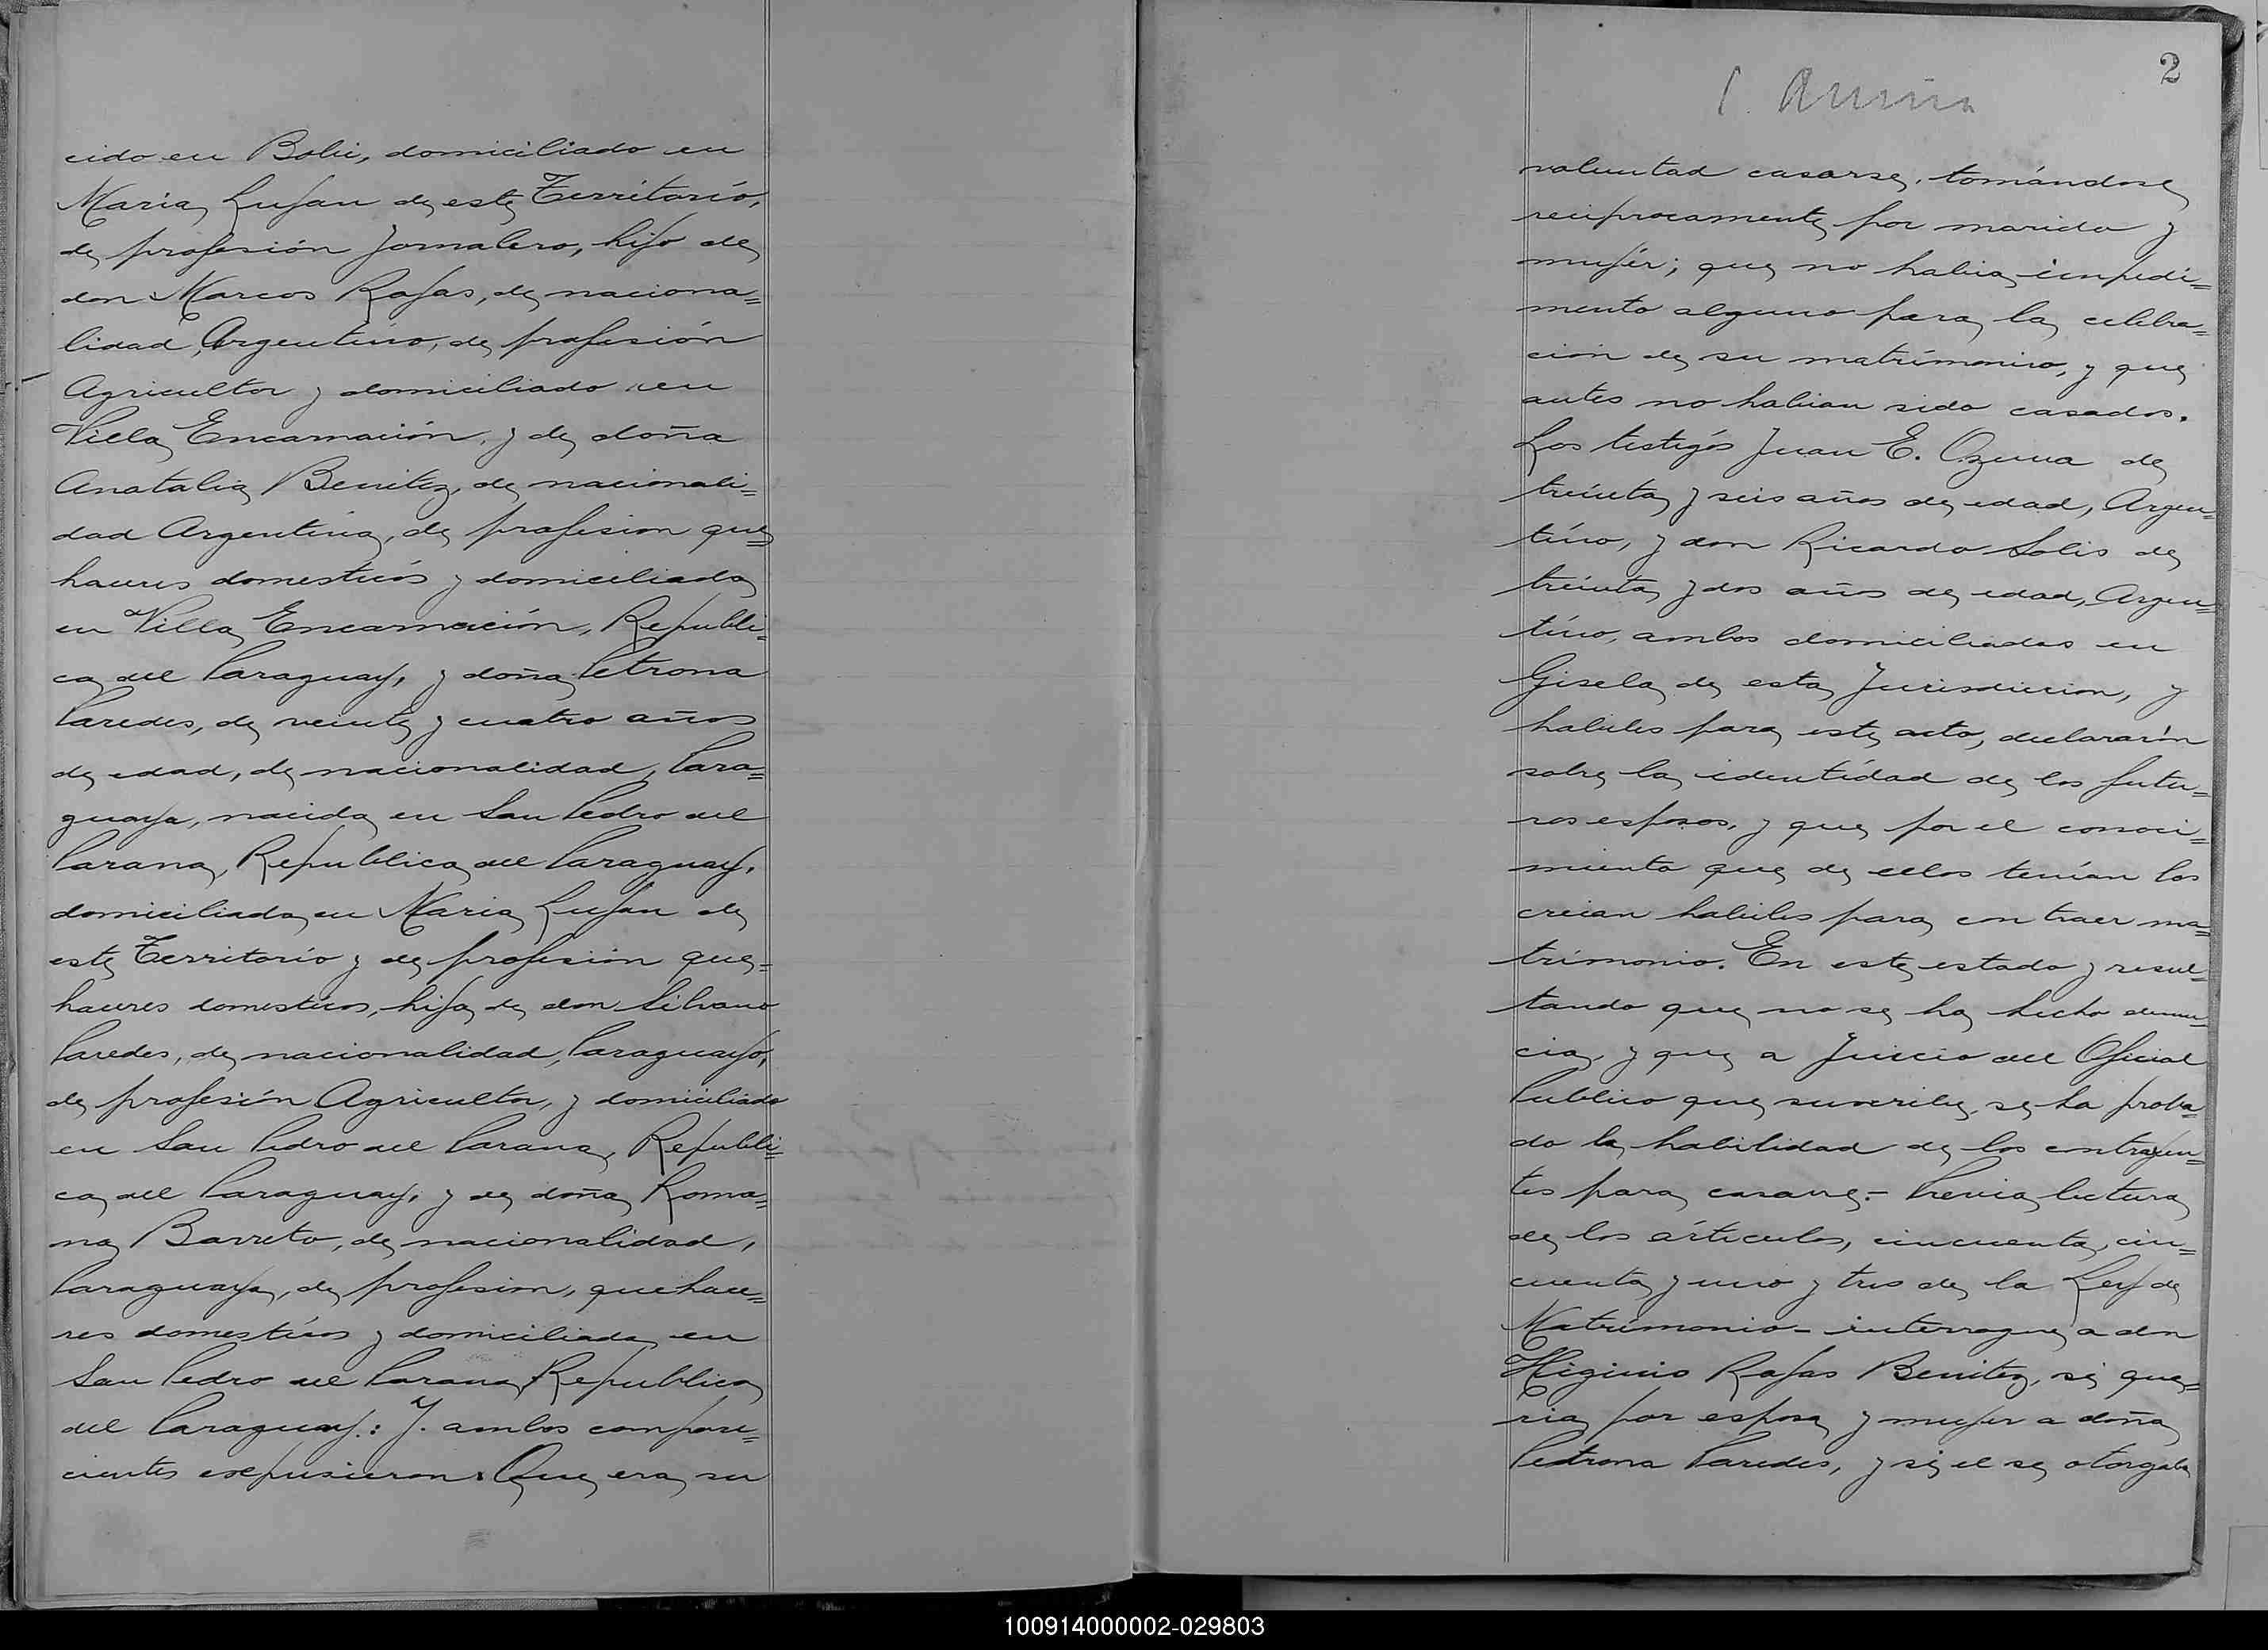 cido en Bobi, domiciliado en
Maria Lujan de este Territorío,
de profesión Jornalero, hijo de
don Marcos Rojas, de naciona=
lidad, Argentino, de profesión
Agricultor y domiciliado en
Villa Encarnación, y de doña
Anatalia Benitez, de nacionali=
dad Argentina, de profesion que=
haceres domesticós y domiciliada
en Villa Encarnación, Republi=
ca del Paraguay, y doña Petrona
Paredes, de veinte y cuatro años
de edad, de nacionalidad, Para=
guaya, nacida en San Pedro del
Parana, Republica del Paraguay,
domiciliada en Maria Lujan de
este Territorío y de profesión que=
haceres domesticos, hija de don Silvano
Paredes, de nacionalidad, Paraguayo,
de profesión Agricultor, y domiciliado
en San Pedro del Parana, Republi=
ca del Paraguay, y de doña Roma=
na Barreto, de nacionalidad,
Paraguaya, de profesion, quehace=
res domestícos y domiciliada en
San Pedro del Parana, Republica
del Paraguay.: Y. ambos compare=
cientes expusieron: Que era su
2
voluntad casarse, tomándose
reciprocamente por marido y
mujér; que no habia impedi=
mento alguno para la celebra=
ción de su matrímonio, y que
antes no habian sido casados.
Los testigós Juan E. Ozuna de
treínta y seis años de edad, Argen=
tíno, y don Ricardo Solis de
treínta y dos años de edad, Argen=
tíno, ambos domiciliados en
Gisela de esta Jurisdiccion, y
habiles para este acto, declararón
sobre la identídad de los futu=
ros esposos, y que por el conoci=
miento que de ellos tenían los
creian habiles para contraer ma=
trímonio. En este estado y resul=
tando que no se ha hecho denun=
cia, y que a Juicio del Oficial
Publico que suscribe, se ha proba=
do la habilidad de los contrayen=
tes para casarse.- Previa lectura
de los artículos, cincuenta, cin=
cuenta y uno y tres de la Ley de
Matrímonio - interrogue a don
Higinio Rojas Benitez, si que=
ria por esposa y mujer a doña
Petrona Paredes, y si el se otorgaba
100914000002-029803